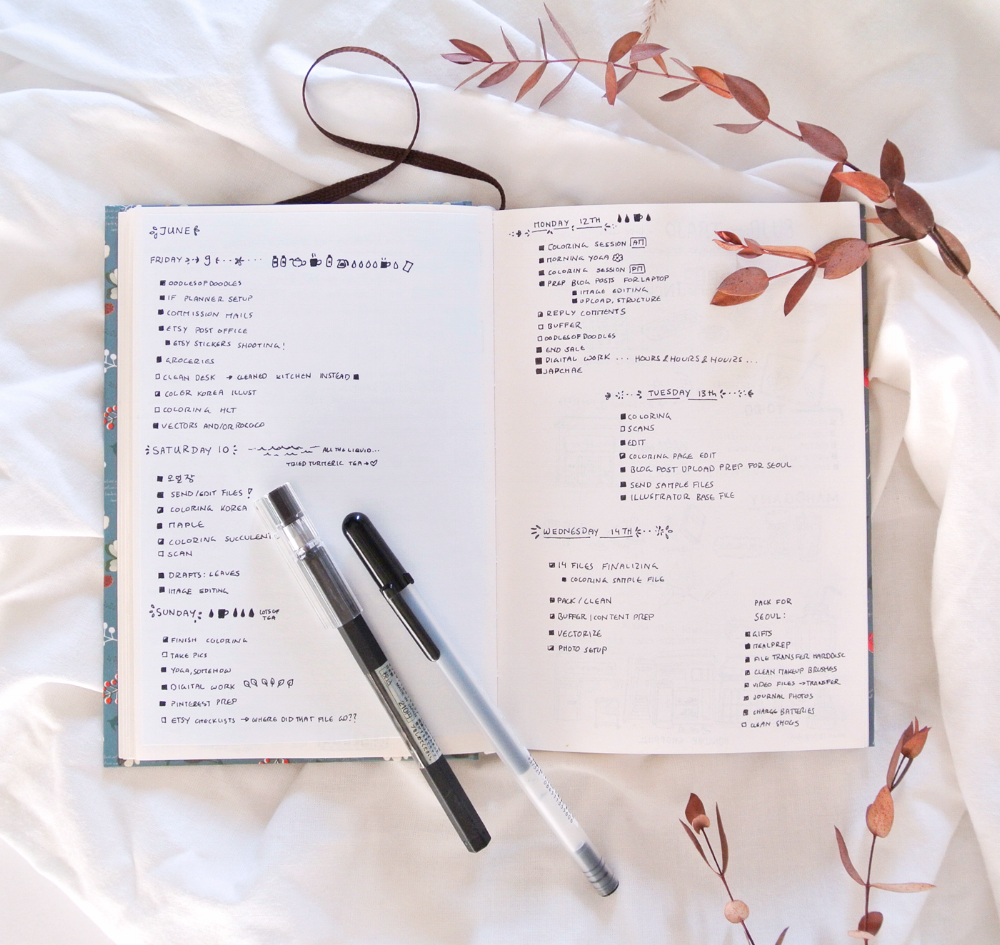 JUNE
FRIDAY 9
OODLESOFDOODLES
IF PLANNER SETUP
COMMISSION MAILS
ETSY POST OFFICE
ETSY STICKERS SHOOTING!
GROCERIES
CLEAN DESK → CLEANED KITCHEN INSTEAD
COLOR KOREA ILLUST
COLORING HLT
VECTORS AND/OR ROCOCO
SATURDAY 10 ALL THE LIQUID...
TRIED TURMERIC TEA
SEND/EDIT FILES!
COLORING KOREA
MAPLE
COLORING SUCCULENT
SCAN
DRAFTS: LEAVES
IMAGE EDITING
SUNDAY LOTS OF
TEA
FINISH COLORING
TAKE PICS
YOGA, SOMEHOW
DIGITAL WORK
PINTEREST PREP
ETSY CHECKLISTS → WHERE DID THAT FILE GO??
MONDAY 12TH
COLORING SESSION AM
MORNING YOGA
COLORING SESSION PM
PREP BLOG POSTS FOR LAPTOP
IMAGE EDITING
UPLOAD, STRUCTURE
REPLY COMMENTS
BUFFER
OODLESOFDOODLES
END SALE
DIGITAL WORK ... HOURS & HOURS & HOURS ...
JAPCHAE
TUESDAY 13th
COLORING
SCANS
EDIT
COLORING PAGE EDIT
BLOG POST UPLOAD PREP FOR SEOUL
SEND SAMPLE FILES
ILLUSTRATOR BASE FILE
WEDNESDAY 14TH
14 FILES FINALIZING
COLORING SAMPLE FILE
PACK/CLEAN
BUFFER/CONTENT PREP
VECTORIZE
PHOTO SETUP
PACK FOR
SEOUL:
GIFTS
MEALPREP
FILE TRANSFER HARDDISC
CLEAN MAKEUP BRUSHES
VIDEO FILES → TRANSFER
JOURNAL PHOTOS
CHARGE BATTERIES
CLEAN SHOES